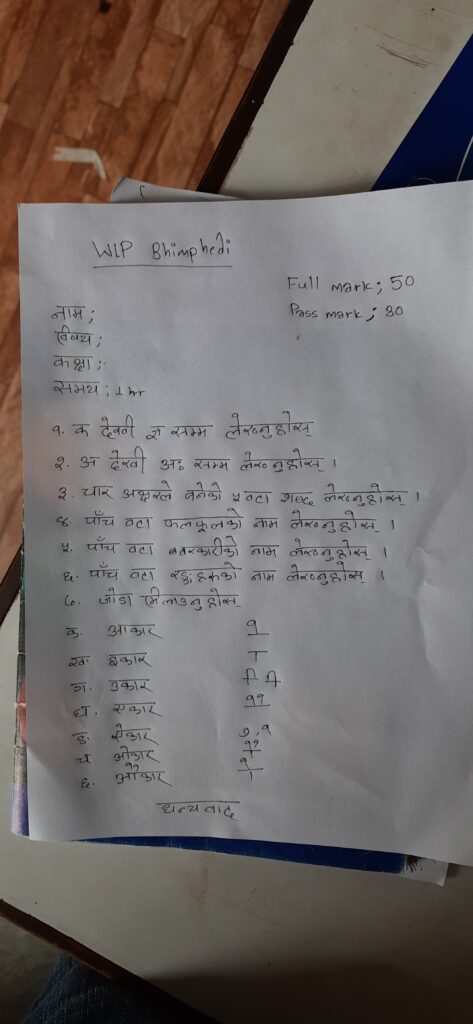 WLP Bhimphedi
Full mark; 50
Pass mark; 30
नाम;
विषय;
कक्षा;
समय; 1 hr
१. क देखी ज्ञ सम्म लेख्नुहोस्
२. अ देखी अः सम्म लेख्नुहोस् ।
३. चार अक्षरले बनेको ५ वटा शब्द लेख्नुहोस् ।
४. पाँच वटा फलफूलको नाम लेख्नुहोस् ।
५. पाँच वटा तरकारीको नाम लेख्नुहोस् ।
६. पाँच वटा रङ्गहरुको नाम लेख्नुहोस् ।
७. जोडा मिलाउनुहोस्
क. आकार
ख. इकार
ग. उकार
घ. एकार
ङ. ऐकार
च. ओकार
छ. औकार
धन्यवाद